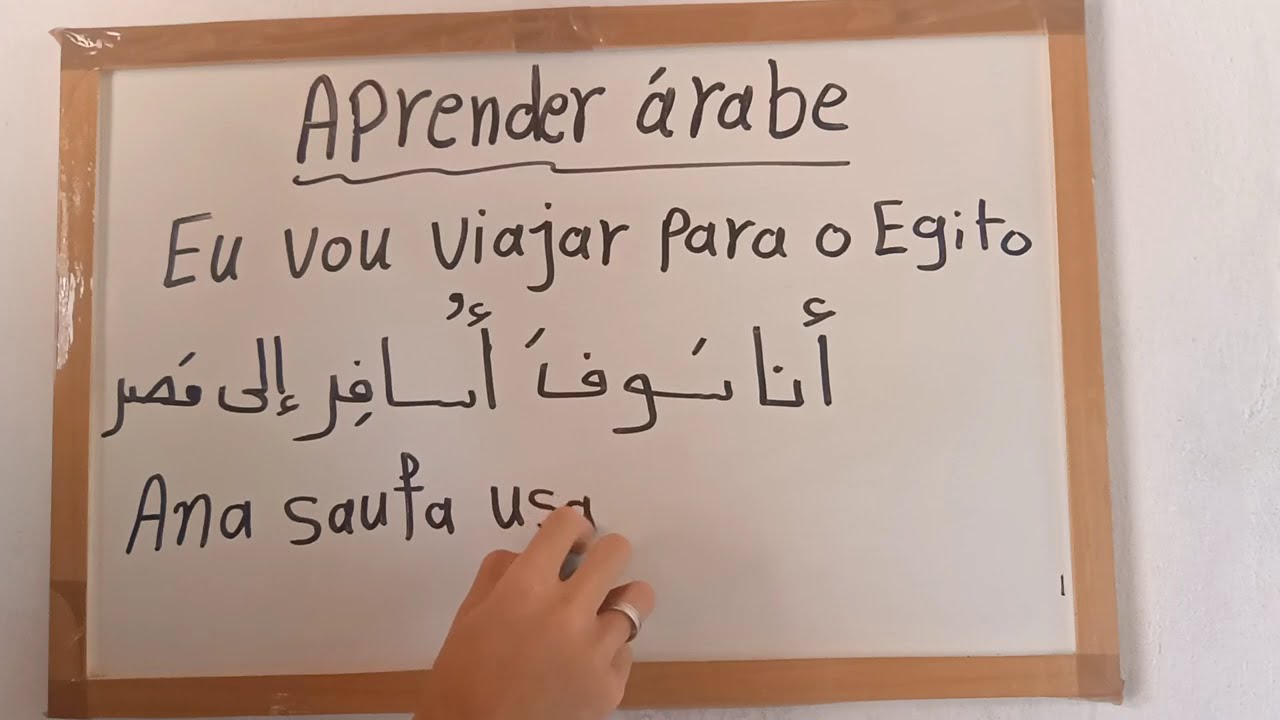 Aprender árabe
Eu vou viajar para o Egito
أنا سَوفَ أُسافِر إلى مَصر
Ana saufa usa